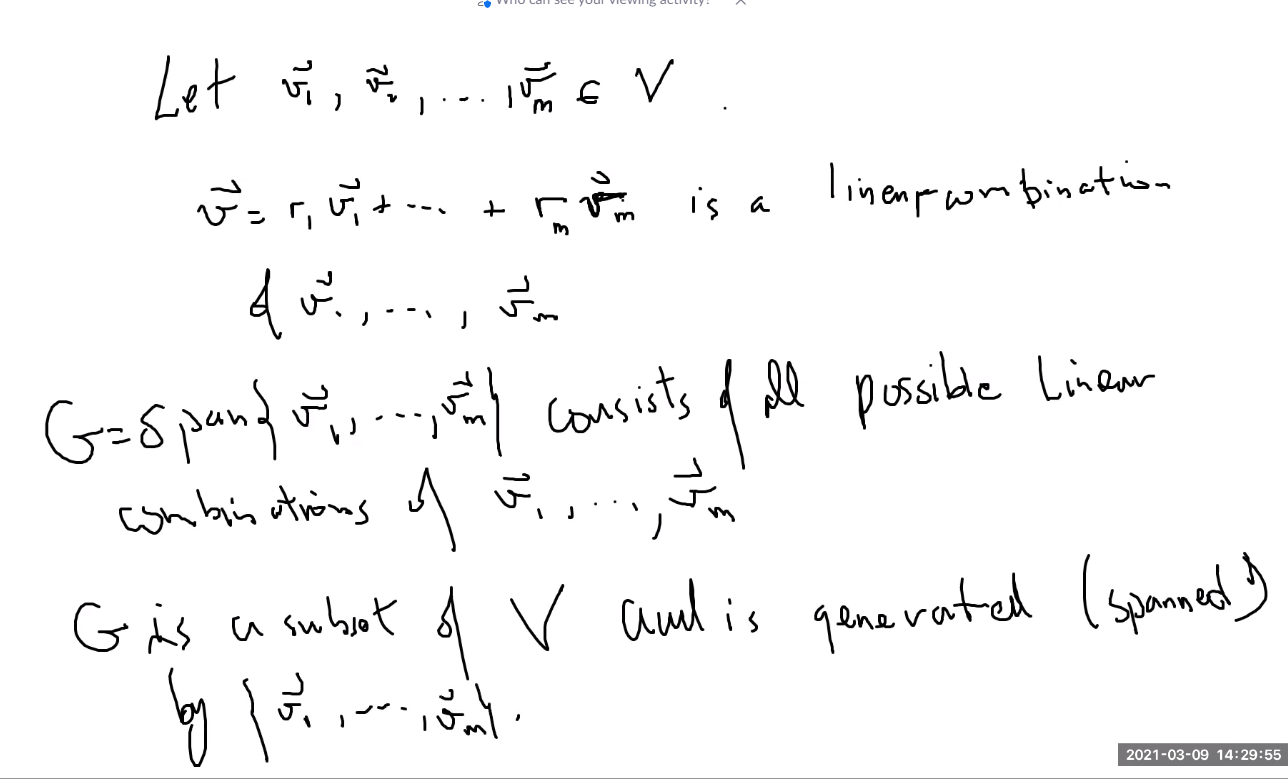 Who can see your viewing activity?
Let v⃗₁, v⃗₂, ..., v⃗ₘ ∈ V.
v⃗ = r₁v⃗₁ + ... + rₘv⃗ₘ is a linear combination
of v⃗₁, ..., v⃗ₘ
G = Span{v⃗₁, ..., v⃗ₘ} consists of all possible Linear
combinations of v⃗₁, ..., v⃗ₘ
G is a subset of V and is generated (spanned)
by {v⃗₁, ..., v⃗ₘ}.
2021-03-09 14:29:55